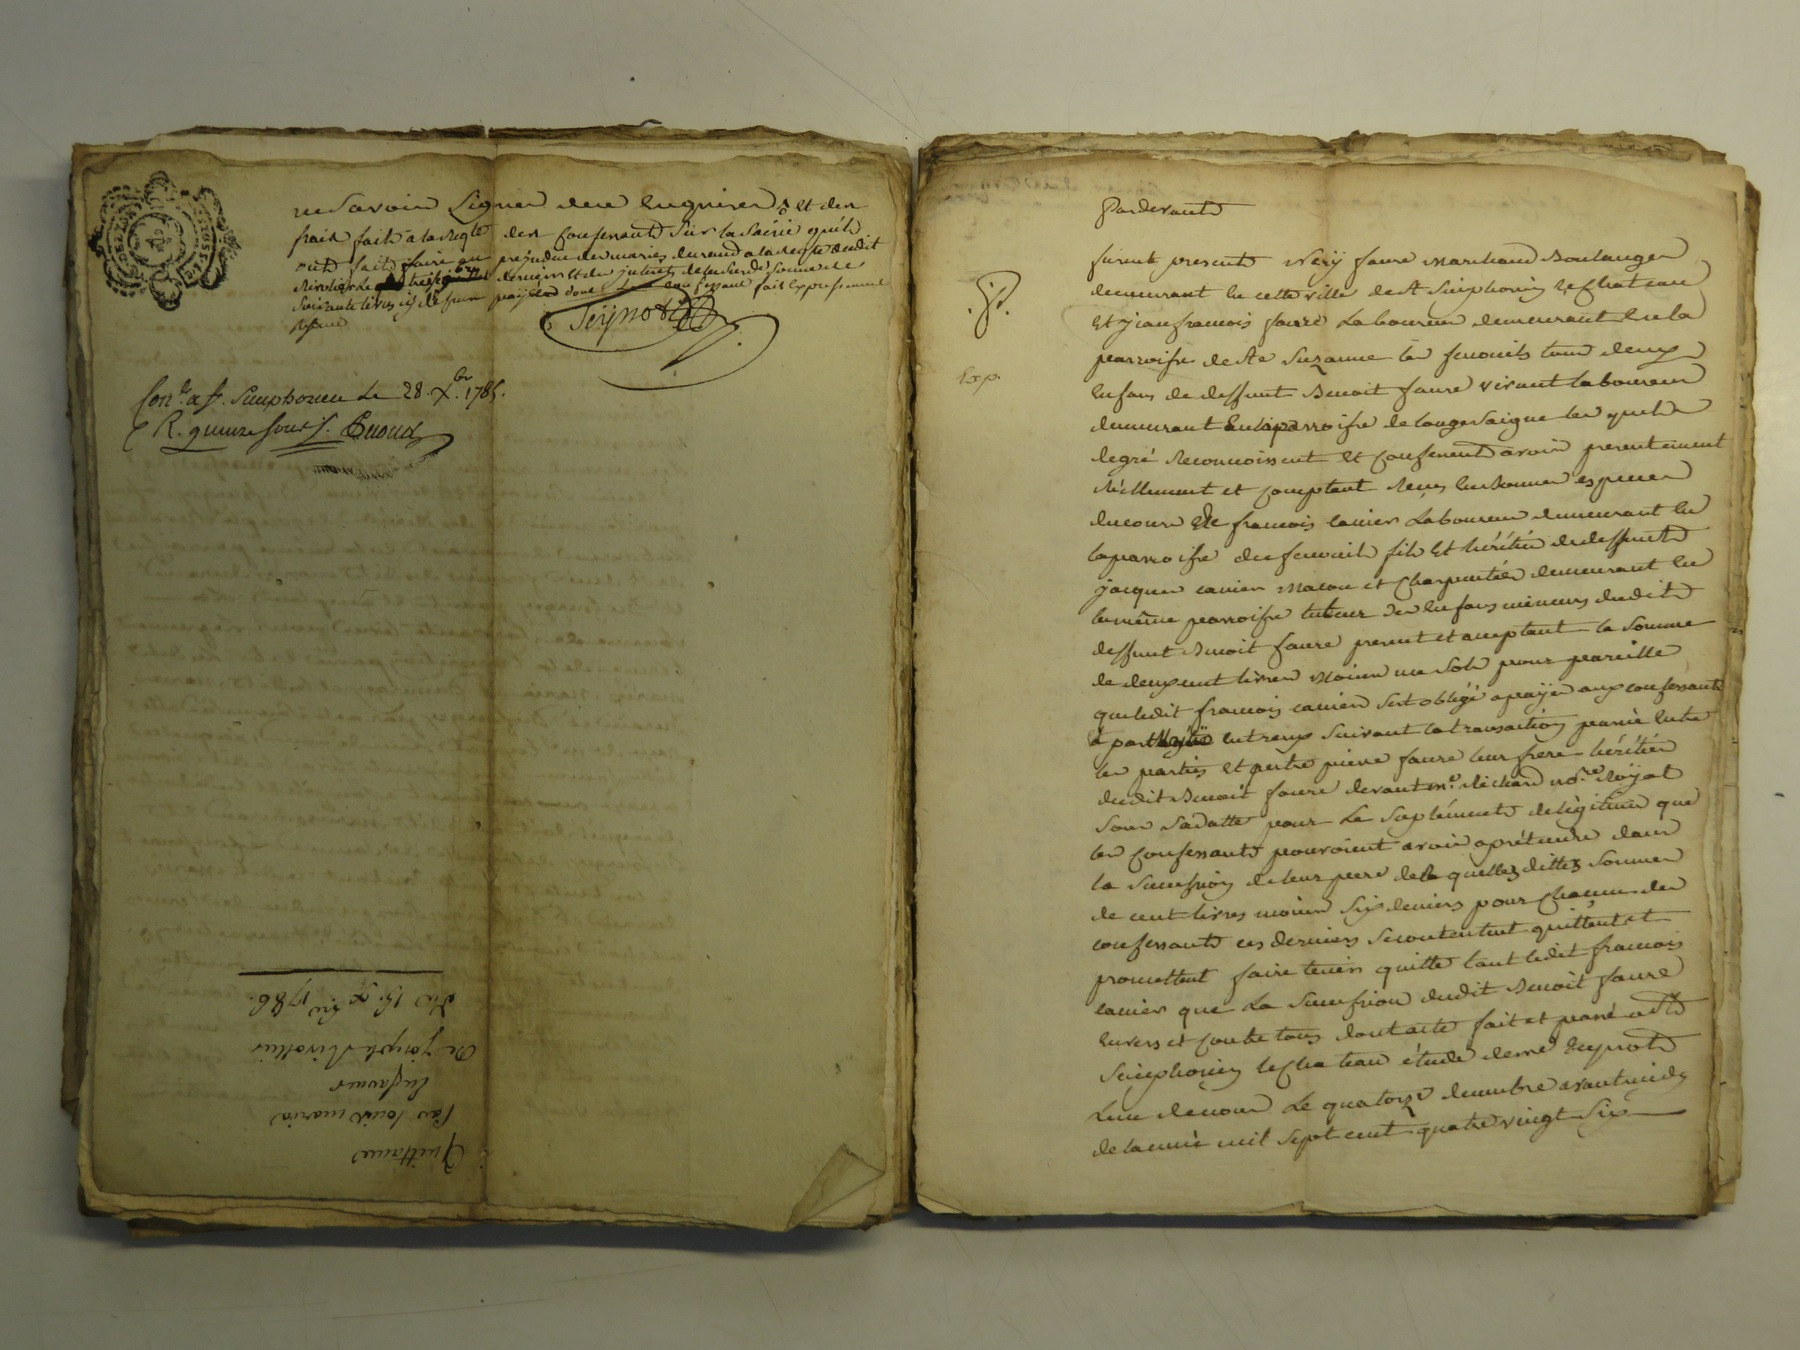 ne Savoir Signer de ce enquérir & et des
frais fait a la Regte des Confessants Sur la Saisie qu'ils
ont fait faire au préjudice des mariés durand a la Reqte dudit
Rivolier Le derniers et des interets de la Susde Somme de
Soixante livres payées dont Le Confessant fait Expressement
Reserve
Seÿnot
Con.le a St. Simphorien Le 28 Xbr. 1786.
R. quinze Sous
Quittance
Par louis marie
De Joseph Rivollier
Du 15. Xbre 1786.
Pardevant
furent presents Nery faure Marchand Boulanger
demeurant En cette ville de St Simphorien Le Chateau
Et Jean francois faure Laboureur demeurant En la
parroisse de Ste Suzanne Les fenouils tous deux
Enfans de deffunt Benoit faure vivant laboureur
demeurant En la parroisse de longesaigne les quels
de gré Reconnoissent Et Confessent avoir presentement
Réellement et Comptant Reçus En bonnes espèces
du cours De francois canier Laboureur demeurant En
la parroisse des fenouils fils Et héritier de deffunt
jacques canier Macon et Charpentier demeurant En
la même parroisse tuteur des Enfans mineurs dudit
deffunt Benoit faure present et acceptant la Somme
de deux cent livres Moins un Sols pour pareille
que ledit francois canier s'est obligé a payer aux confessants
a partager entreux Suivant la transaction passée Entre
les parties Et autre pierre faure leur frere héritier
dudit Benoit faure devant me. Richard nore. Royal
Sous Sa datte pour Le Suplement de légitime que
les Confessants pouvoient avoir a prétendre dans
la Succession de leur pere des quelles dittes Sommes
de cent livres moins Six deniers pour Chacun des
confessants ces derniers Se contentent quittent et
promettent faire tenir quitte tant ledit francois
canier que La Succession dudit Benoit faure
Envers et Contre tous dont acte fait et passé audt St
Simphorien le Chateau étude de me Seynot
L'un de nous Le quatorze decembre avant midy
de l'année mil Sept cent quatre vingt Six
Exp.